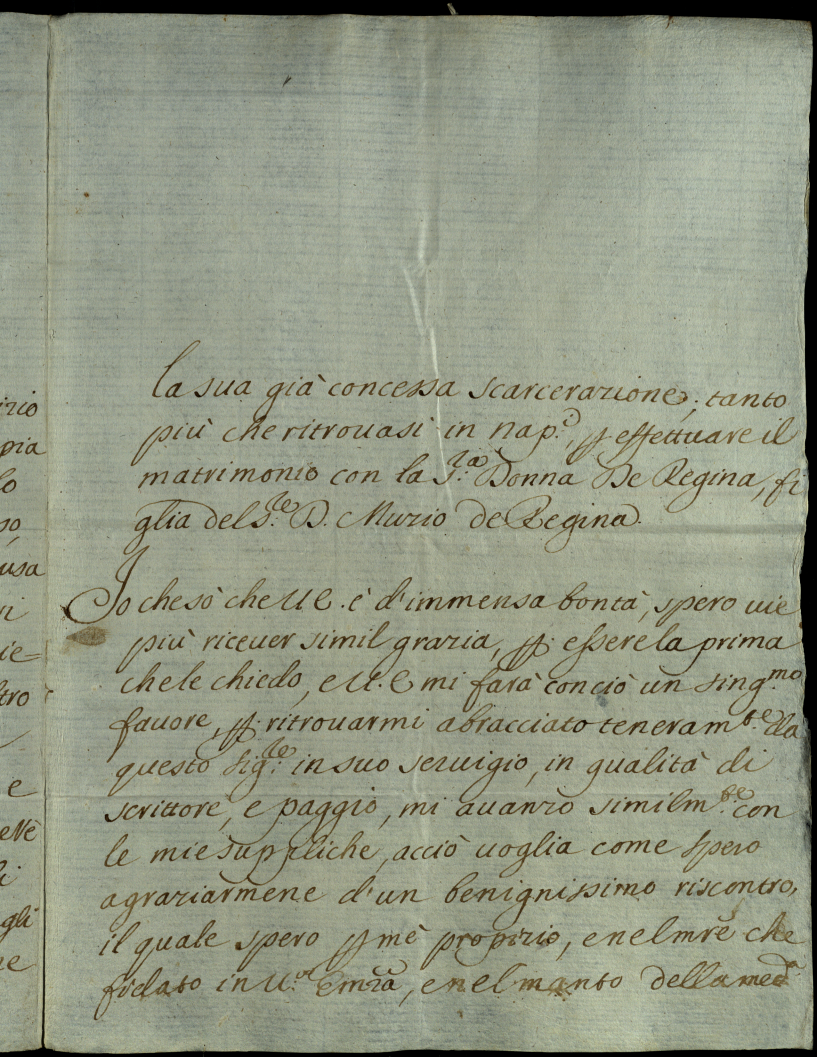 la sua già concessa scarcerazione, tanto
più che ritrouasi in nap.i, p effettuare il
matrimonio con la S.ra Donna De Regina, fi
glia del S.re D. Muzio de Regina.
Io che sò che U.E. è d'immensa bontà, spero uie
più riceuer simil grazia, p. essere la prima
che le chiedo, e U.E mi farà conciò un sing.mo
fauore, p. ritrouarmi abracciato teneram.te da
questo Sig.re in suo seruigio, in qualità di
scrittore, e paggio, mi auanzo similm.te con
le mie suppliche, acciò uoglia come spero
agraziarmene d'un benignissimo riscontro,
il quale spero p mè propizio, e nel mrè che
fidato in U.a Emza, e nel manto della med.a
irio
pia
lo
so,
usa
ri
ie=
ltro
e
eNè
li
gli
ne